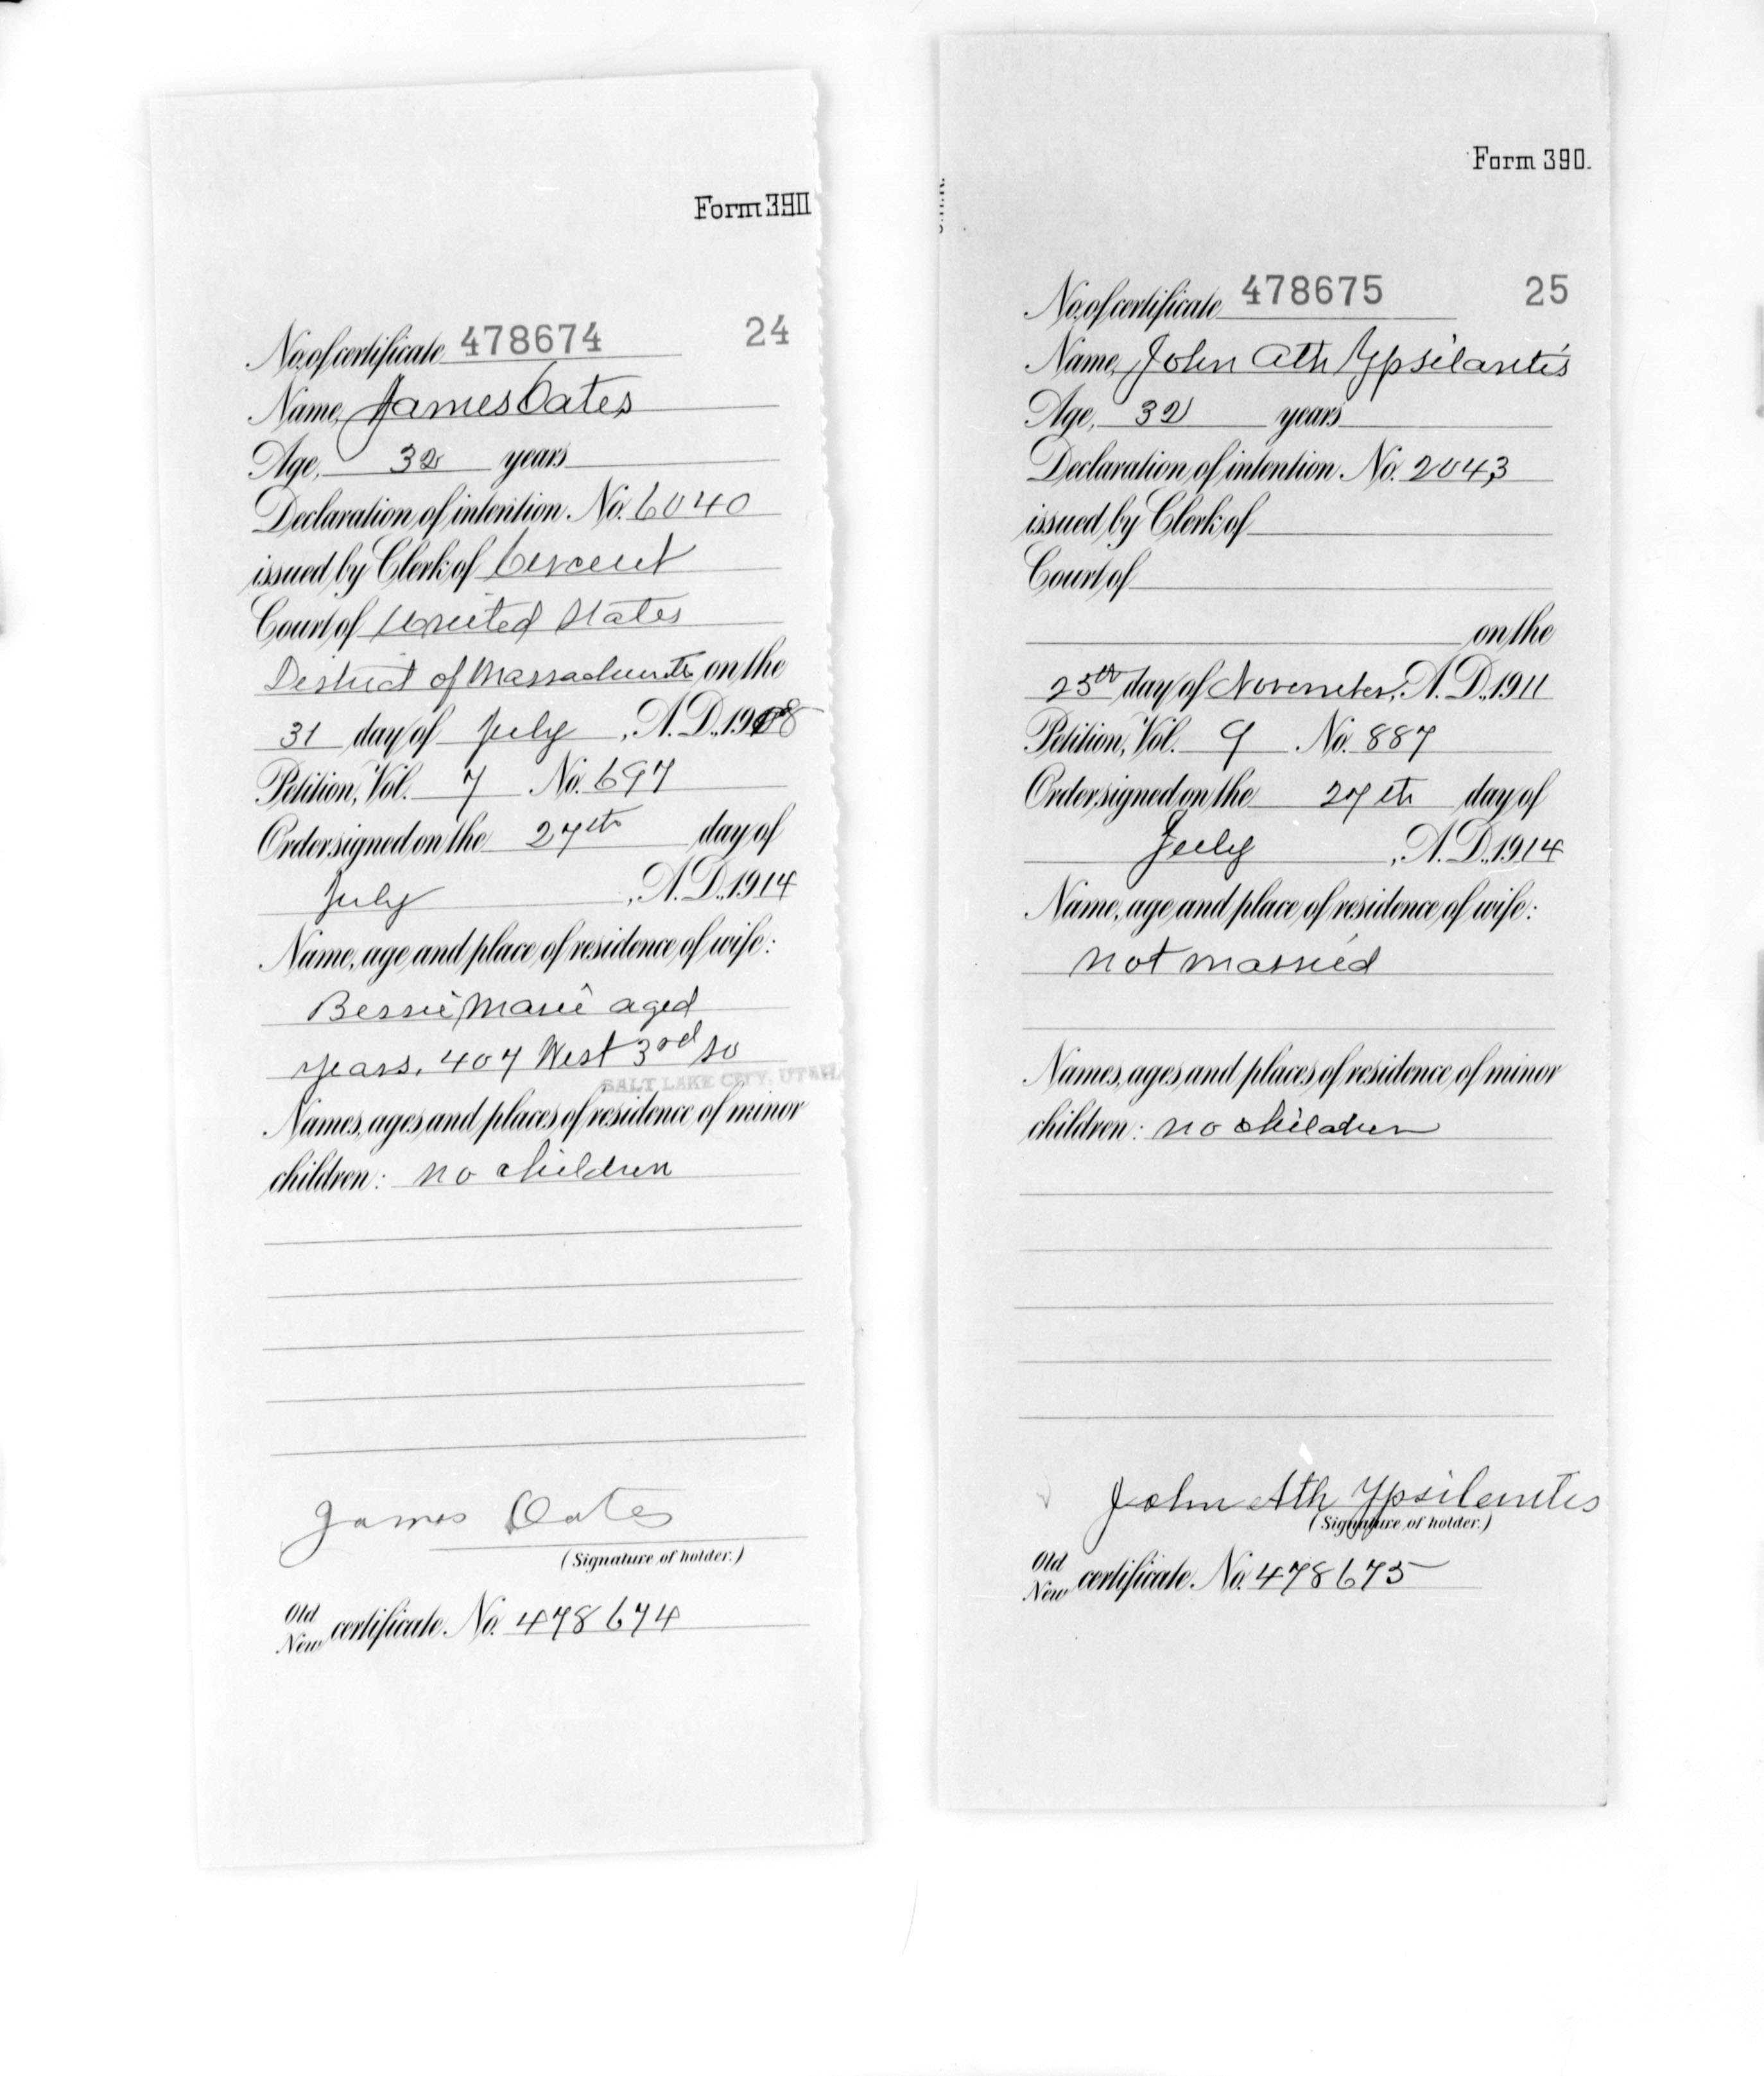 Form 390
No. of certificate 478674 24
Name, James Oates
Age, 32 years
Declaration of intention No. 6040
issued by Clerk of Circuit
Court of United States
District of Massachusetts on the
31 day of July , A. D. 1908
Petition, Vol. 7 No. 697
Order signed on the 27th day of
July , A. D. 1914
Name, age and place of residence of wife:
Bessie Marie aged
years, 407 West 3rd So
SALT LAKE CITY, UTAH.
Names, ages and places of residence of minor
children: no children
James Oates
(Signature of holder.)
Old
New certificate No. 478674
Form 390.
No. of certificate 478675 25
Name, John Ath Ypsilantis
Age, 32 years
Declaration of intention No. 2043
issued by Clerk of
Court of
on the
25th day of November, A. D. 1911
Petition, Vol. 9 No. 887
Order signed on the 27th day of
July , A. D. 1914
Name, age and place of residence of wife:
not married
Names, ages and places of residence of minor
children: no children
John Ath Ypsilantis
(Signature of holder.)
Old
New certificate No. 478675